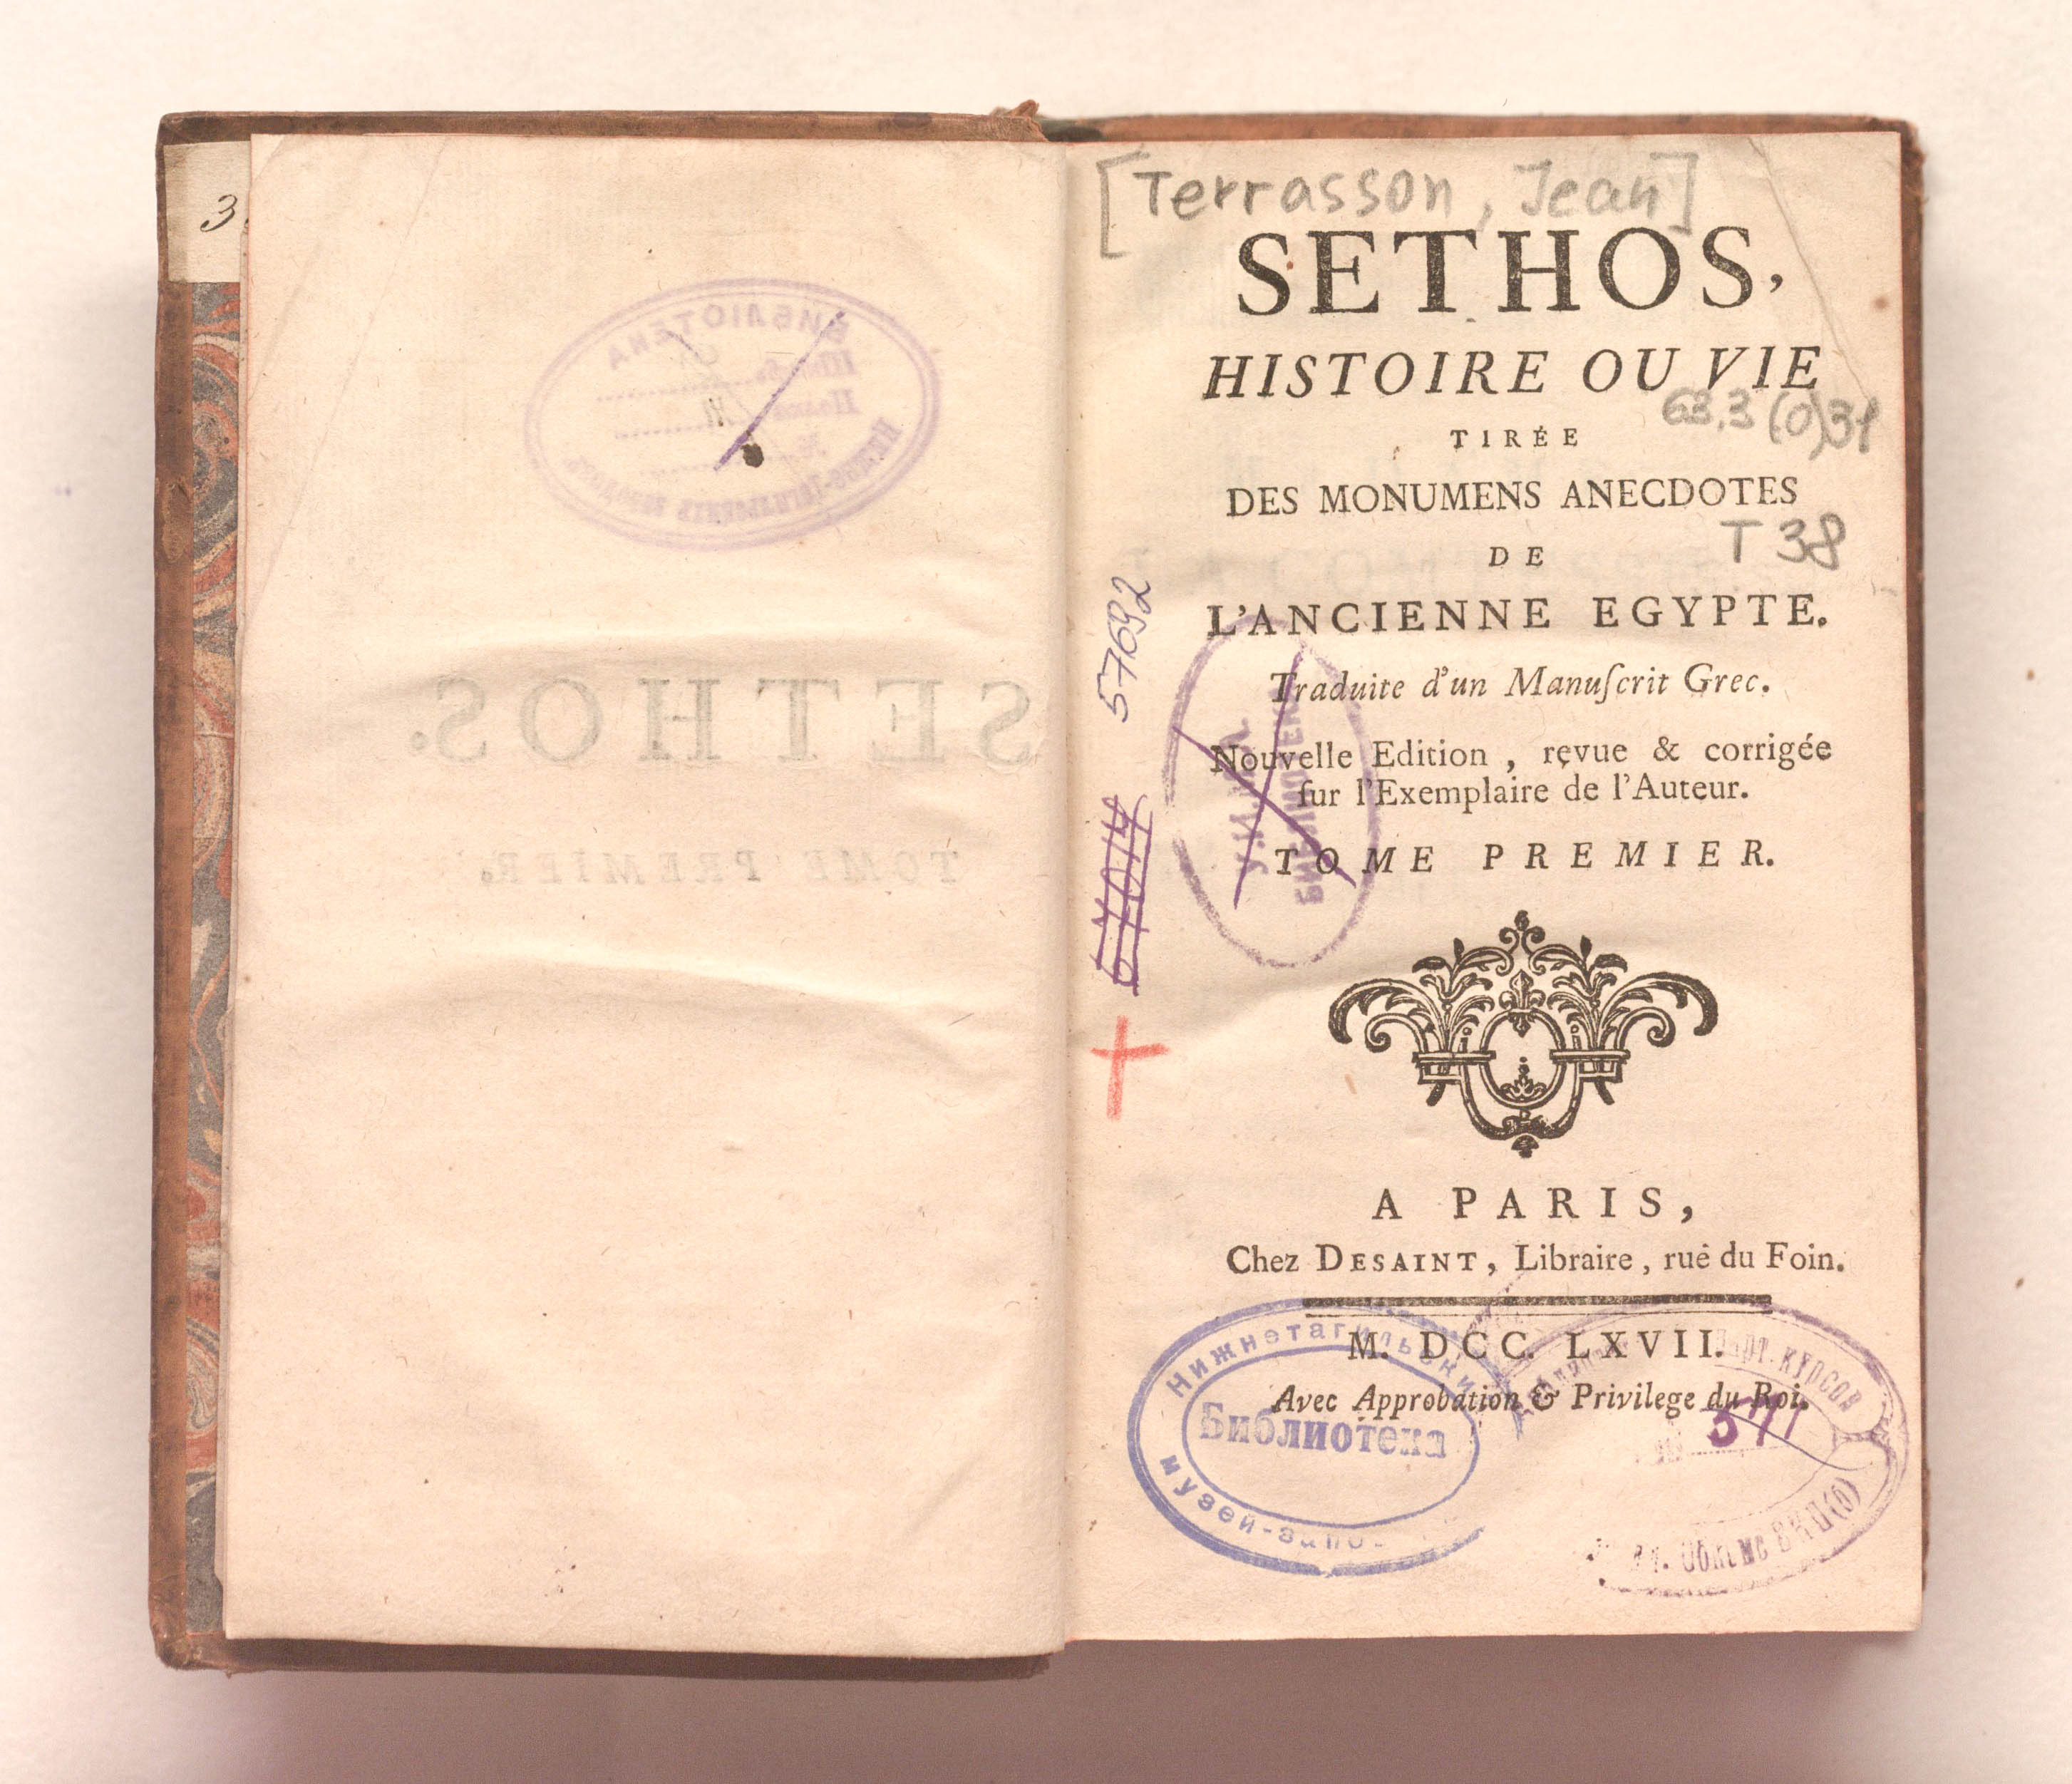 3
БИБЛІОТЕКА
SETHOS.
TOME PREMIER.
[Terrasson, Jean]
SETHOS,
HISTOIRE OU VIE
63.3(0)31
TIRÉE
DES MONUMENS ANECDOTES
T 38
DE
L'ANCIENNE EGYPTE.
Traduite d'un Manuſcrit Grec.
Nouvelle Edition, revue & corrigée
ſur l'Exemplaire de l'Auteur.
TOME PREMIER.
57692
БИБЛИОТЕКА
A PARIS,
Chez DESAINT, Libraire, rue du Foin.
M. DCC. LXVII.
Avec Approbation & Privilege du Roi.
Нижнетагильский
Библиотека
музей-запо
курсов
571